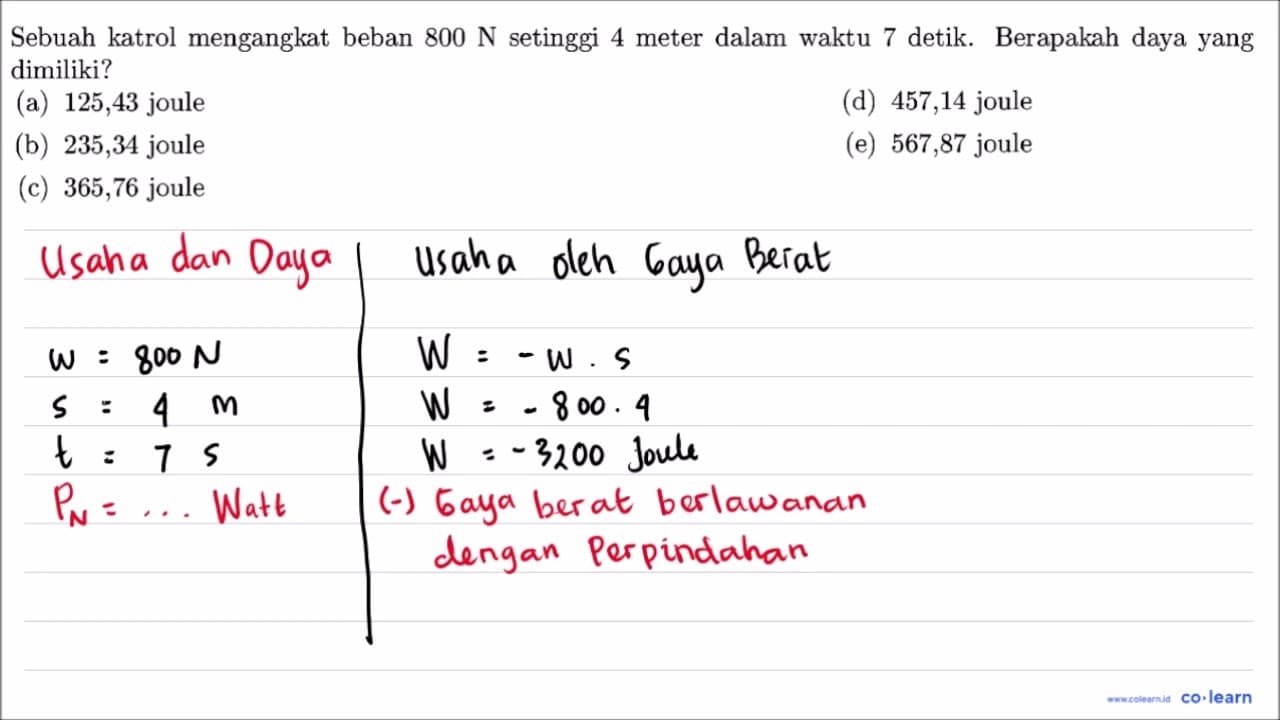 Sebuah katrol mengangkat beban 800 N setinggi 4 meter dalam waktu 7 detik. Berapakah daya yang
dimiliki?
(a) 125,43 joule
(b) 235,34 joule
(c) 365,76 joule
(d) 457,14 joule
(e) 567,87 joule
Usaha dan Daya
w = 800 N
s = 4 m
t = 7 s
P_N = ... Watt
Usaha oleh Gaya Berat
W = - w . s
W = - 800 . 4
W = - 3200 Joule
(-) Gaya berat berlawanan
dengan Perpindahan
www.colearn.id co·learn